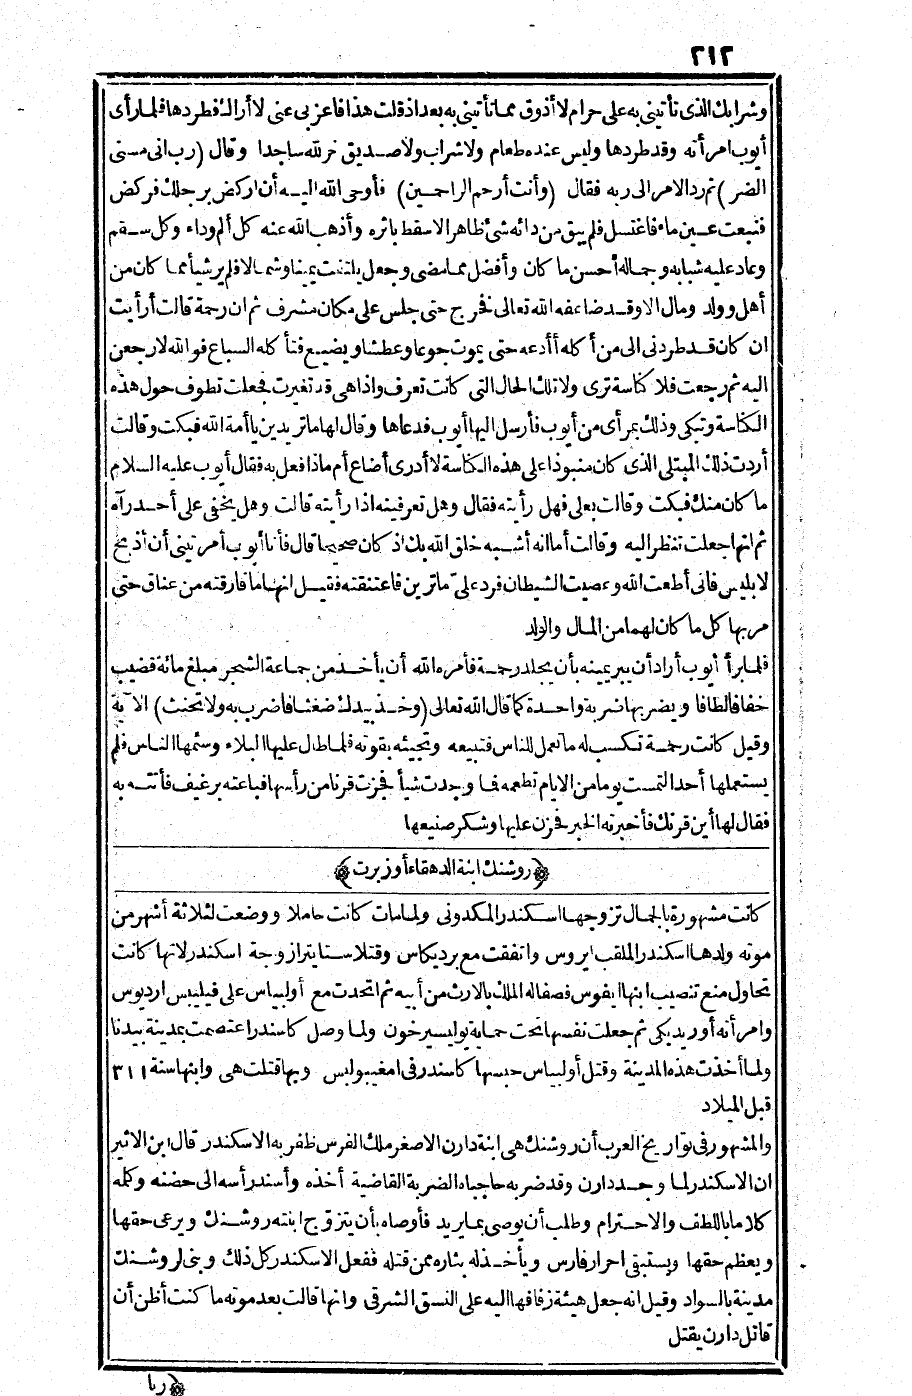 ٢١٢
وشرابك الذي تأتيني به علي حرام لا أذوق مما تأتيني به بعد اذ قلت هذا فاعزبي عني لا أراك فطردها فلما رأى
أيوب امرأته وقد طردها وليس عنده طعام ولا شراب ولا صديق خر لله ساجدا وقال (رب اني مسني
الضر) ثم رد الامر الى ربه فقال (وأنت أرحم الراحمين) فأوحى الله اليه أن اركض برجلك فركض
فنبعت عين ماء فاغتسل فلم يبق من دائه شئ ظاهر الا سقط باثره وأذهب الله عنه كل ألم وداء وكل سقم
وعاد عليه شبابه وجماله أحسن ما كان وأفضل مما مضى وجعل يلتفت يمينا وشمالا فلم ير شيأ مما كان من
أهل وولد ومال الا وقد ضاعفه الله تعالى فخرج حتى جلس على مكان مشرف ثم ان رحمة قالت أرأيت
ان كان قد طردني الى من أكله أأدعه حتى يموت جوعا وعطشا ويضيع فتأكله السباع فو الله لارجعن
اليه ثم رجعت فلا كناسة ترى ولا تلك الحال التي كانت تعرف واذا هي قد تغيرت فجعلت تطوف حول هذه
الكناسة وتبكي وذلك بمرأى من أيوب فأرسل اليها أيوب فدعاها وقال لها ما تريدين يا أمة الله فبكت وقالت
أردت ذلك المبتلي الذي كان منبوذا على هذه الكناسة لا أدري أضاع أم ماذا فعل به فقال أيوب عليه السلام
ما كان منك فبكت وقالت بعلي فهل رأيته فقال وهل تعرفينه اذا رأيته قالت وهل يخفى على أحد رآه
ثم انها جعلت تنظر اليه وقالت أما انه أشبه خلق الله بك اذ كان صحيحا قال فأنا أيوب أمرتيني أن أذبح
لابليس فاني أطعت الله وعصيت الشيطان فرد علي ما ترين فاعتنقته فقيل انها ما فارقته من عناق حتى
مر بها كل ما كان لهما من المال والولد
فلما برأ أيوب أراد أن يبر يمينه بأن يجلد رحمة فأمره الله أن يأخذ من جماعة الشجر مبلغ مائة قضيب
خفافا لطافا ويضربها ضربة واحدة كما قال الله تعالى (وخذ بيدك ضغثا فاضرب به ولا تحنث) الآية
وقيل كانت رحمة تكسب له ما تعمل للناس فتبيعه وتجيئه بقوته فلما طال عليها البلاء وسئمها الناس فلم
يستعملها أحد التمست يوما من الايام تطعمه فما وجدت شيأ فجزت قرنا من رأسها فباعته برغيف فأتته به
فقال لها أين قرنك فأخبرته الخبر فحزن عليها وشكر صنيعها
﴿روشنك ابنة الدهقاء أوزبرت﴾
كانت مشهورة بالجمال تزوجها اسكندر المكدوني ولما مات كانت حاملا ووضعت لثلاثة أشهر من
موته ولدها اسكندر الملقب ايروس واتفقت مع برديكاس وقتلا ستايترا زوجة اسكندر لانها كانت
تحاول منع تنصيب ابنها ايفوس فصفا له الملك بالارث من أبيه ثم اتحدت مع أولبياس على فيليبس ارديوس
وامرأته أوريديكي ثم جعلت نفسها تحت حماية بوليسيرخون ولما وصل كاسندر اعتصمت بمدينة بيدنا
ولما أخذت هذه المدينة وقتل أولبياس حبسها كاسندر في امغيبوليس وبها قتلت هي وابنها سنة ٣١١
قبل الميلاد
والمشهور في تواريخ العرب أن روشنك هي ابنة دارن الاصغر ملك الفرس ظفر به الاسكندر قال ابن الاثير
ان الاسكندر لما وجد دارن وقد ضربه حاجباه الضربة القاضية أخذه وأسند رأسه الى حضنه وكلمه
كلاما باللطف والاحترام وطلب أن يوصي بما يريد فأوصاه بأن يتزوج ابنته روشنك ويرعى حقها
ويعظم حقها ويستبقي احرار فارس ويأخذ له بثاره ممن قتله ففعل الاسكندر كل ذلك وبنى لروشنك
مدينة بالسواد وقيل انه جعل هيئة زفافها اليه على النسق الشرقي وانها قالت بعد موته ما كنت أظن أن
قاتل دارن يقتل
﴿ريا